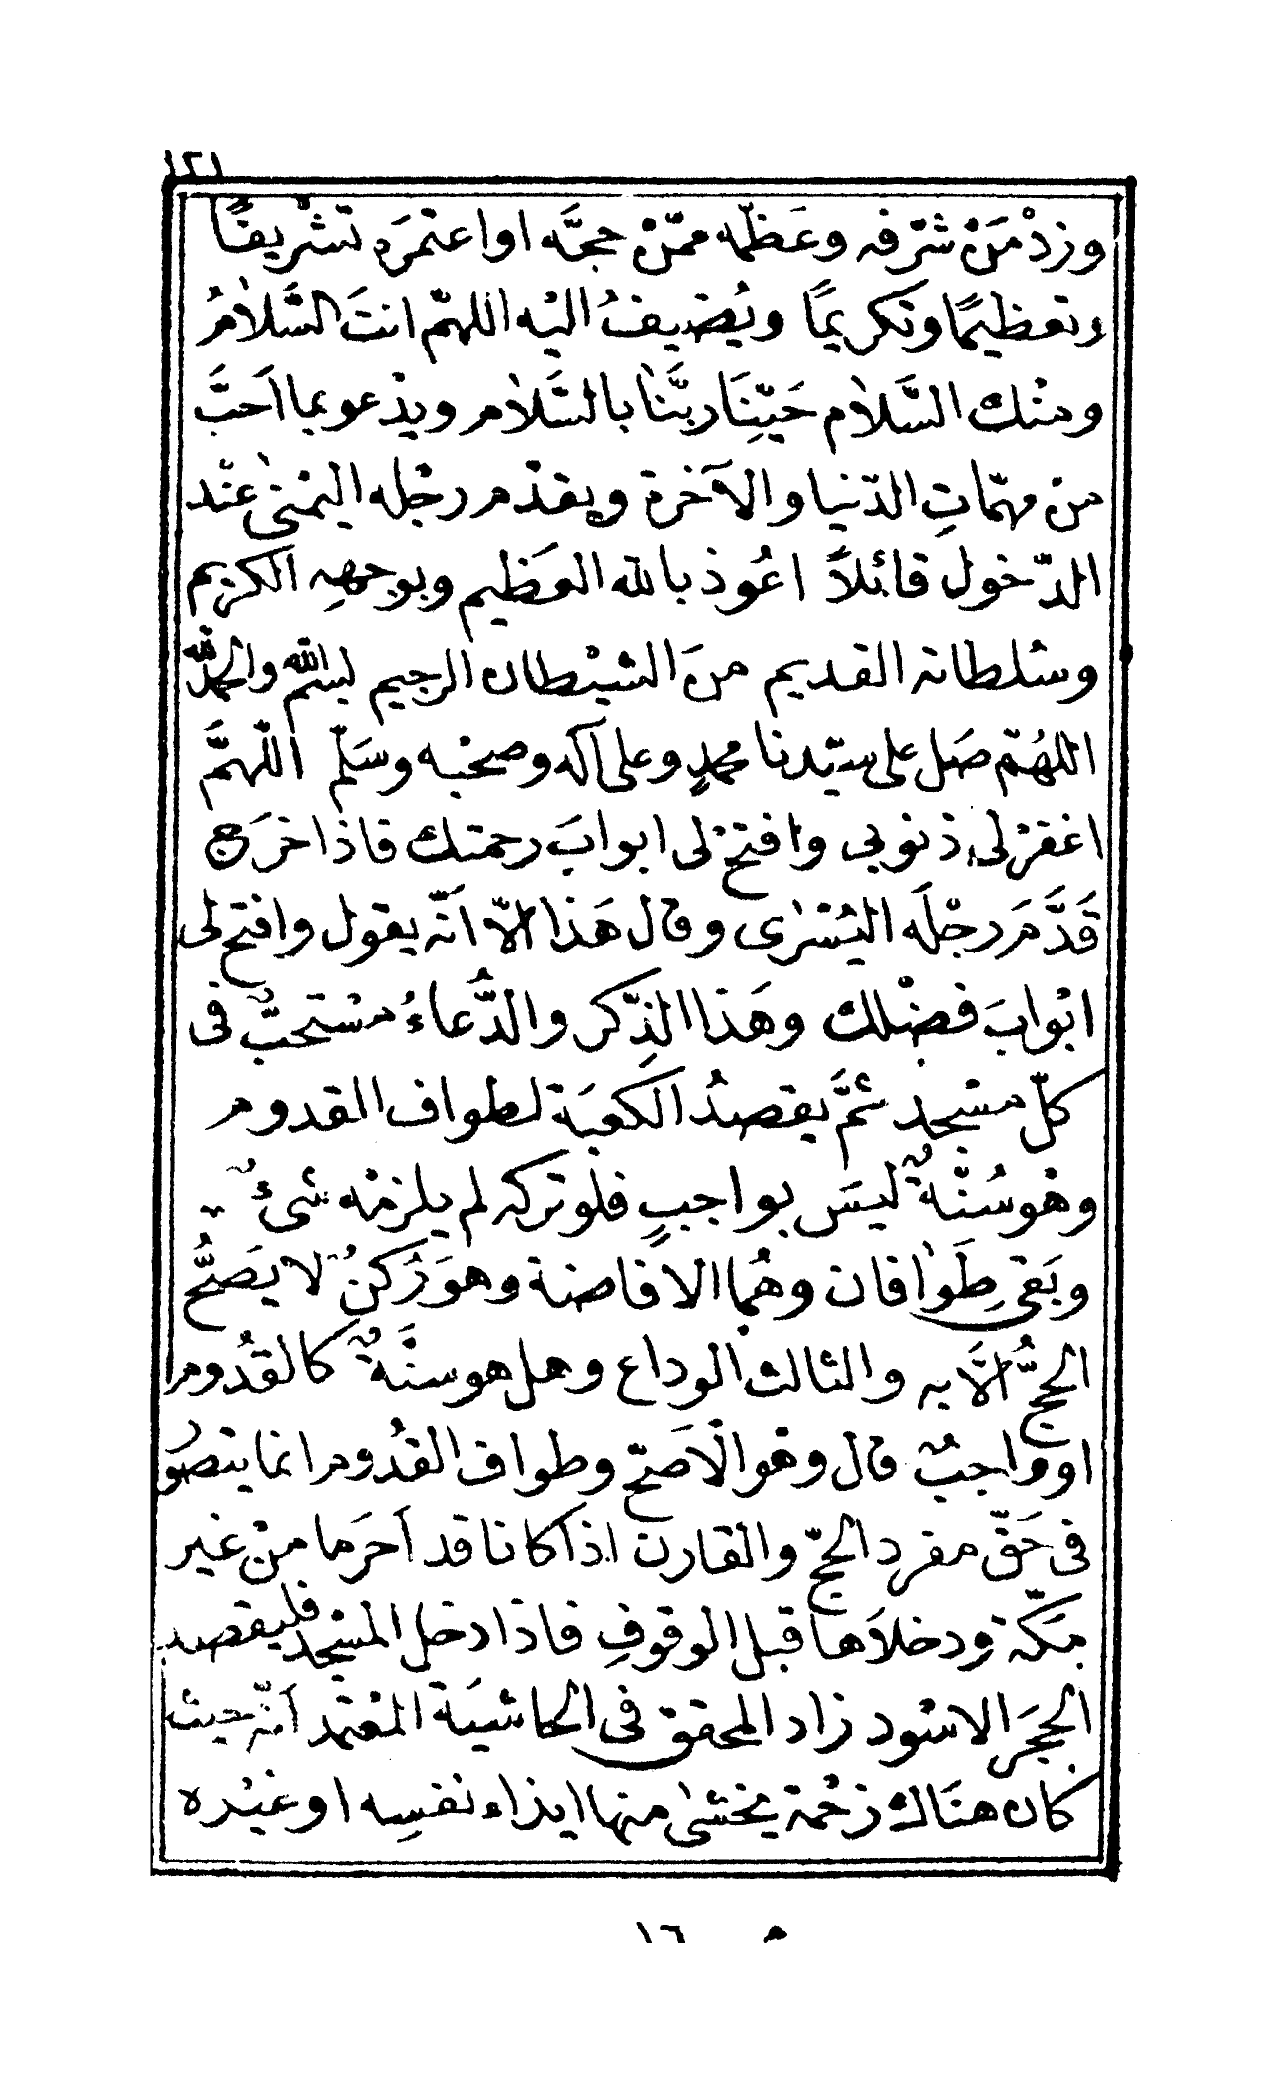 ١٢١
وزدْ مَنْ شرّفه وعَظّمه ممّنْ حجَّه او اعتمَره تشْريفًا
وتعظيمًا وتكريمًا ويُضيفُ اليْه اللهمّ انتَ السَّلامُ
ومنْك السَّلام حَيّنِنَا ربَّنا بالسَّلام ويدْعو بما احَبَّ
منْ مهمّاتِ الدّنيا والآخرة ويقدّم رجْله اليمْنى عنْد
الدّخول قائلاً اعُوذ بالله العَظيم وبوجههِ الكريم
وسُلطانه القديم منَ الشيْطان الرجيم بسم الله والحمد لله
اللهُمّ صَل على سيّدنا محمدٍ وعلى آله وصحْبه وسَلّم اللّهمَّ
اغفرْ لى ذنوبى وافتحْ لى ابوابَ رحمتك فاذا خرَج
قَدَّمَ رجْلَه اليُسْرٰى وقال هَذا الاّ انّه يقول وافتح لى
ابْوابَ فضْلك وهَذا الذِّكر والدُّعاءُ مسْتحبٌّ فى
كلّ مسْجد ثمَّ يقصدُ الكعبَة لطواف القدوم
وهْو سُنّةٌ ليسَ بواجبٍ فلو تركه لم يلزمْه شئٌ
وبَقى طَوٰافان وهُما الافاضة وهوَ رُكنٌ لا يَصُّح
الحجُّ الاَّ به والثالث الوداع وهل هو سنَّةٌ كالقُدوم
او واجبٌ قال وهْو الاَصحّ وطواف القدُوم انما يتصُوّر
فى حَقّ مفرد الحجّ والقارن اذا كانا قد اَحرَما منْ غير
مكّة ودخلاَها قبل الوقوفِ فاذا دخل المسْجد فليقصد
الحجَر الاسْود زاد المحقق فى الحاشيَة المعْتمد اَنّه حيث
كان هنَاك زحْمة يخشٰى منها ايذاء نفسِه او غيْره
١٦ م